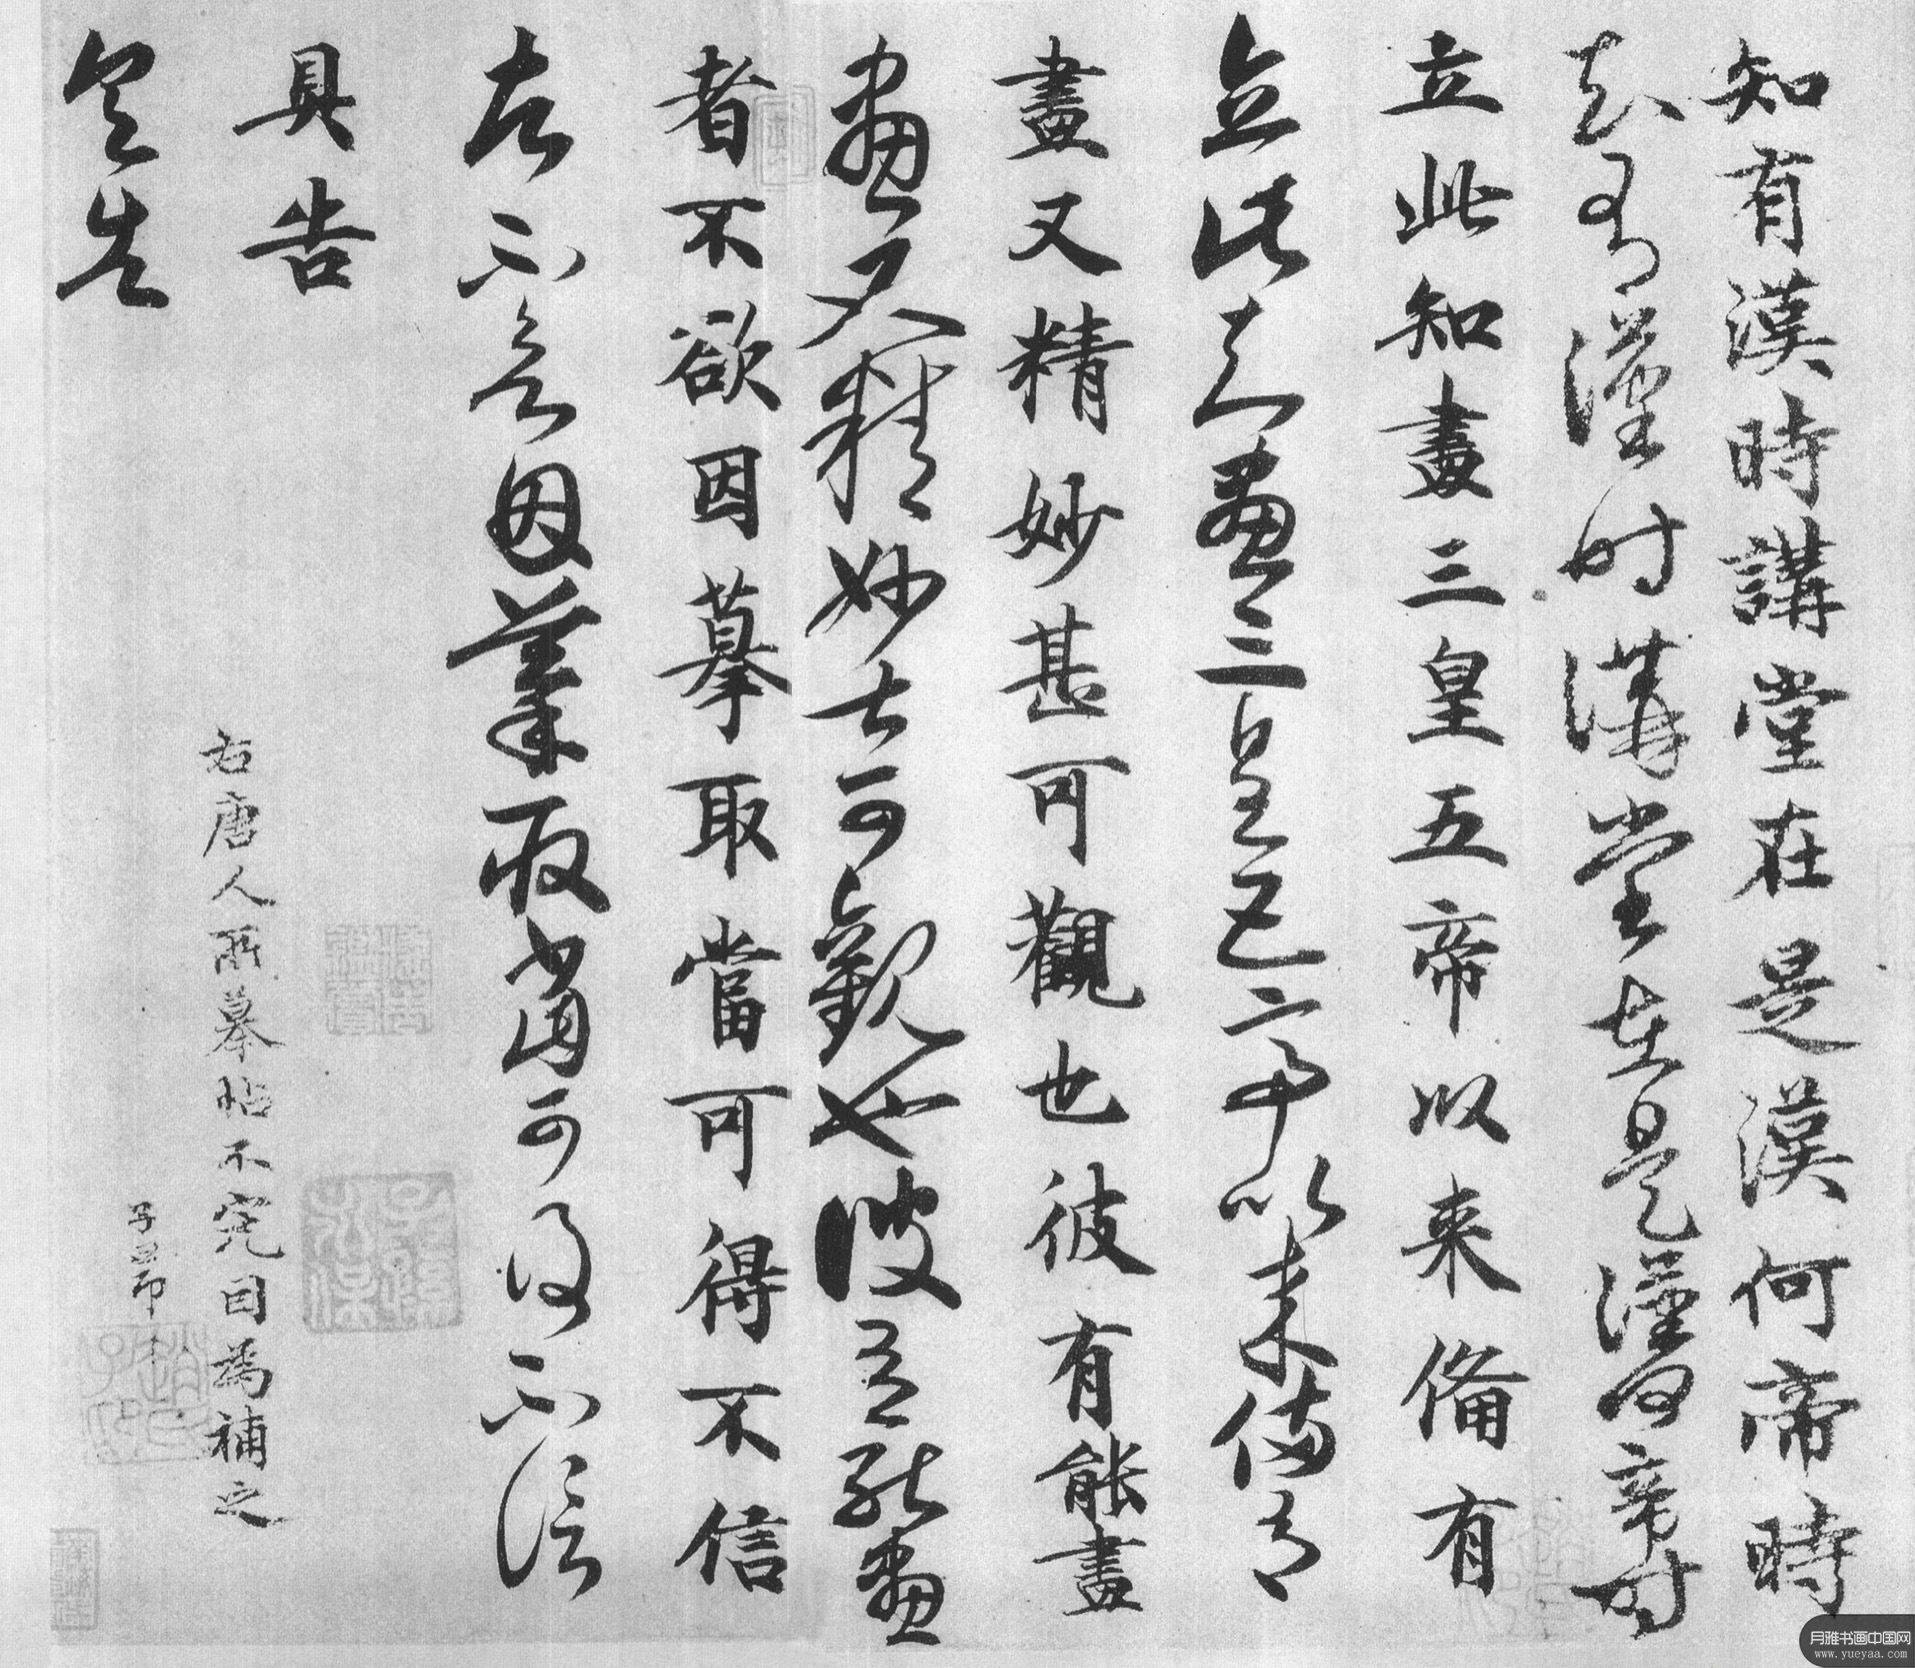 知有漢時講堂在是漢何帝時
知有漢時講堂在是漢何帝時
立此知畫三皇五帝以来備有
立此知畫三皇五帝以来備有
畫又精妙甚可觀也彼有能畫
畫又精妙甚可觀也彼有能畫
者不欲因摹取當可得不信
者不欲因摹取當可得不信
具告
具告
右唐人所摹帖不完因為補之
子昂
月雅书画中国网
www.yueyaa.com